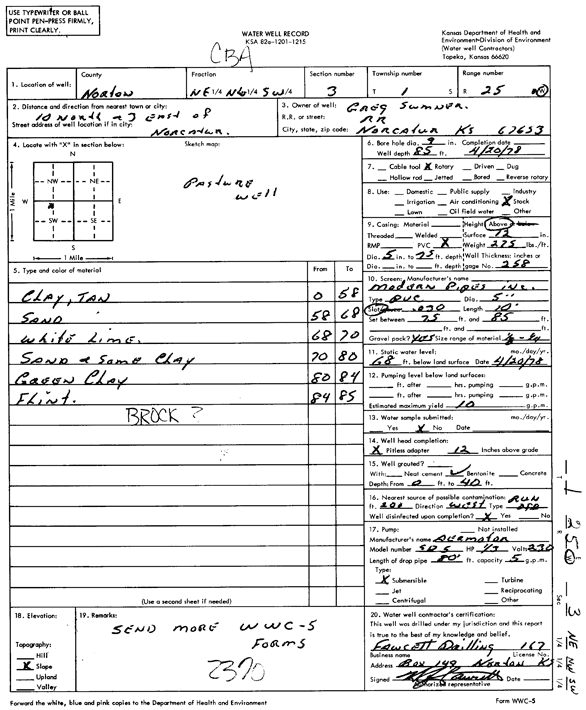 USE TYPEWRITER OR BALL
POINT PEN-PRESS FIRMLY,
PRINT CLEARLY.
WATER WELL RECORD
KSA 82a-1201-1215
Kansas Department of Health and
Environment-Division of Environment
(Water well Contractors)
Topeka, Kansas 66620
CBA
1. Location of well:
County
Norton
Fraction
NE 1/4 NW 1/4 SW 1/4
Section number
3
Township number
T 1 S
Range number
R 25 W
2. Distance and direction from nearest town or city:
10 North & 3 East of
Street address of well location if in city:
Norcatur.
3. Owner of well: Greg Sumner.
R.R. or street: RR
City, state, zip code: Norcatur Ks 67653
4. Locate with "X" in section below:
Sketch map:
N
NW NE
W E
SW SE
S
1 Mile
1 Mile
Pasture
well
5. Type and color of material
From To
Clay, Tan 0 58
Sand 58 68
White Lime. 68 70
Sand & Some Clay 70 80
Green Clay 80 84
Flint. 84 85
BROCK ?
(Use a second sheet if needed)
6. Bore hole dia. 9 in. Completion date
Well depth 85 ft. 4/20/78
7. Cable tool X Rotary Driven Dug
Hollow rod Jetted Bored Reverse rotary
8. Use: Domestic Public supply Industry
Irrigation Air conditioning X Stock
Lawn Oil field water Other
9. Casing: Material Height: Above or below
Threaded Welded Surface 12 in.
RMP PVC X Weight 275 lbs./ft.
Dia. 5 in. to 75 ft. depth Wall Thickness: inches or
Dia. in. to ft. depth gage No. 258
10. Screen: Manufacturer's name
Modern Pipes Inc.
Type PVC Dia. 5"
Slot .030 Length 10'
Set between 75 ft. and 85 ft.
ft. and ft.
Gravel pack? Yes Size range of material
11. Static water level: mo./day/yr.
68 ft. below land surface Date 4/20/78
12. Pumping level below land surfaces:
ft. after hrs. pumping g.p.m.
ft. after hrs. pumping g.p.m.
Estimated maximum yield 10 g.p.m.
13. Water sample submitted: mo./day/yr.
Yes X No Date
14. Well head completion:
X Pitless adapter 12 Inches above grade
15. Well grouted?
With: Neat cement Bentonite Concrete
Depth: From 0 ft. to 40 ft.
16. Nearest source of possible contamination: Run
ft. 200 Direction West Type
Well disinfected upon completion? X Yes No
17. Pump: Not installed
Manufacturer's name Dermotor
Model number HP 1/3 Volts 230
Length of drop pipe 80' ft. capacity 5 g.p.m.
Type:
X Submersible Turbine
Jet Reciprocating
Centrifugal Other
18. Elevation:
Topography:
Hill
X Slope
Upland
Valley
19. Remarks:
SEND MORE WWC-5
FORMS
2370
20. Water well contractor's certification:
This well was drilled under my jurisdiction and this report
is true to the best of my knowledge and belief.
Fawcett Drilling 167
Business name License No.
Address Box 149 Norton Ks
Signed Date
Authorized representative
T 1 R 25 E W Sec 3 NE NW SW
1/4 1/4 1/4
Forward the white, blue and pink copies to the Department of Health and Environment
Form WWC-5